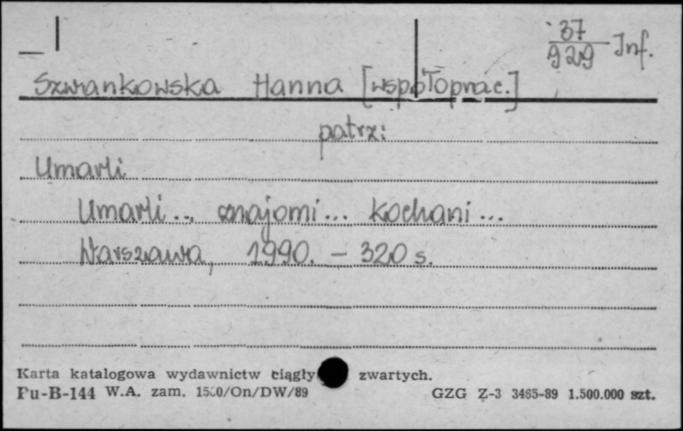 37
929 Inf.
Szwankowska Hanna [współoprac.]
patrz:
Umarli
Umarli... znajomi... kochani...
Warszawa, 1990. - 320 s.
Karta katalogowa wydawnictw ciągły zwartych.
Pu-B-144 W.A. zam. /On/DW/89 GZG Z-3 3465-89 1.500.000 szt.